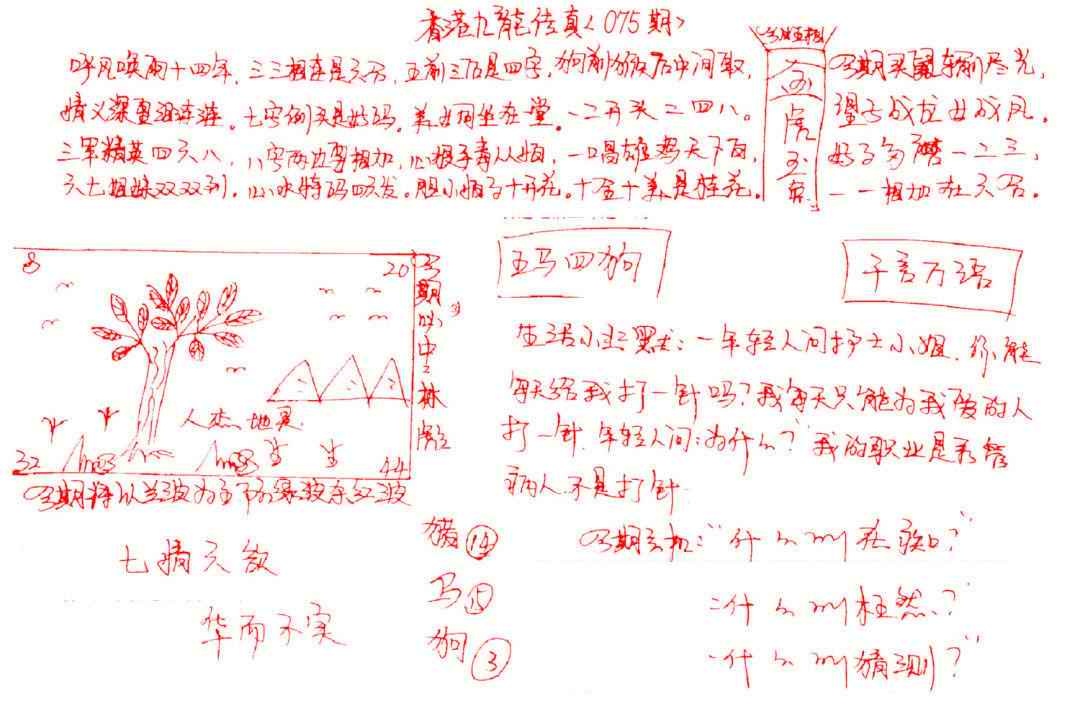 香港九龍传真<075期>
呼风唤雨十四年，三三相连是六合，五前三后是四字，狗前狗后中间取，
情义深重 连连。七字倒头是好码，美女同坐在堂。一二开头二四八。
三军精英四六八，八字两边要相加，心狠手毒人，一唱雄鸡天下白，
六七姐妹双双到，心水特码四六发。胆小 十开花。十全十美是桂花。
金虎玉兔
今期买 尽光，
望子成龙女成凤，
好事多磨一二三，
一一相加在六合。
8
20
今期 中 林
32
44
人杰地灵
今期特以兰波为主 绿波 红波
五马四狗
千言万语
生活小幽默：一年轻人问护士小姐，你能
每天给我打一针吗？我每天只能为我爱的人
打一针，年轻人问：为什么？我的职业是看管
病人不是打针
七情六欲
华而不实
猪 14
马 15
狗 3
今期玄机：“什么叫 ？”
：什么叫枉然？”
“什么叫猜测？”